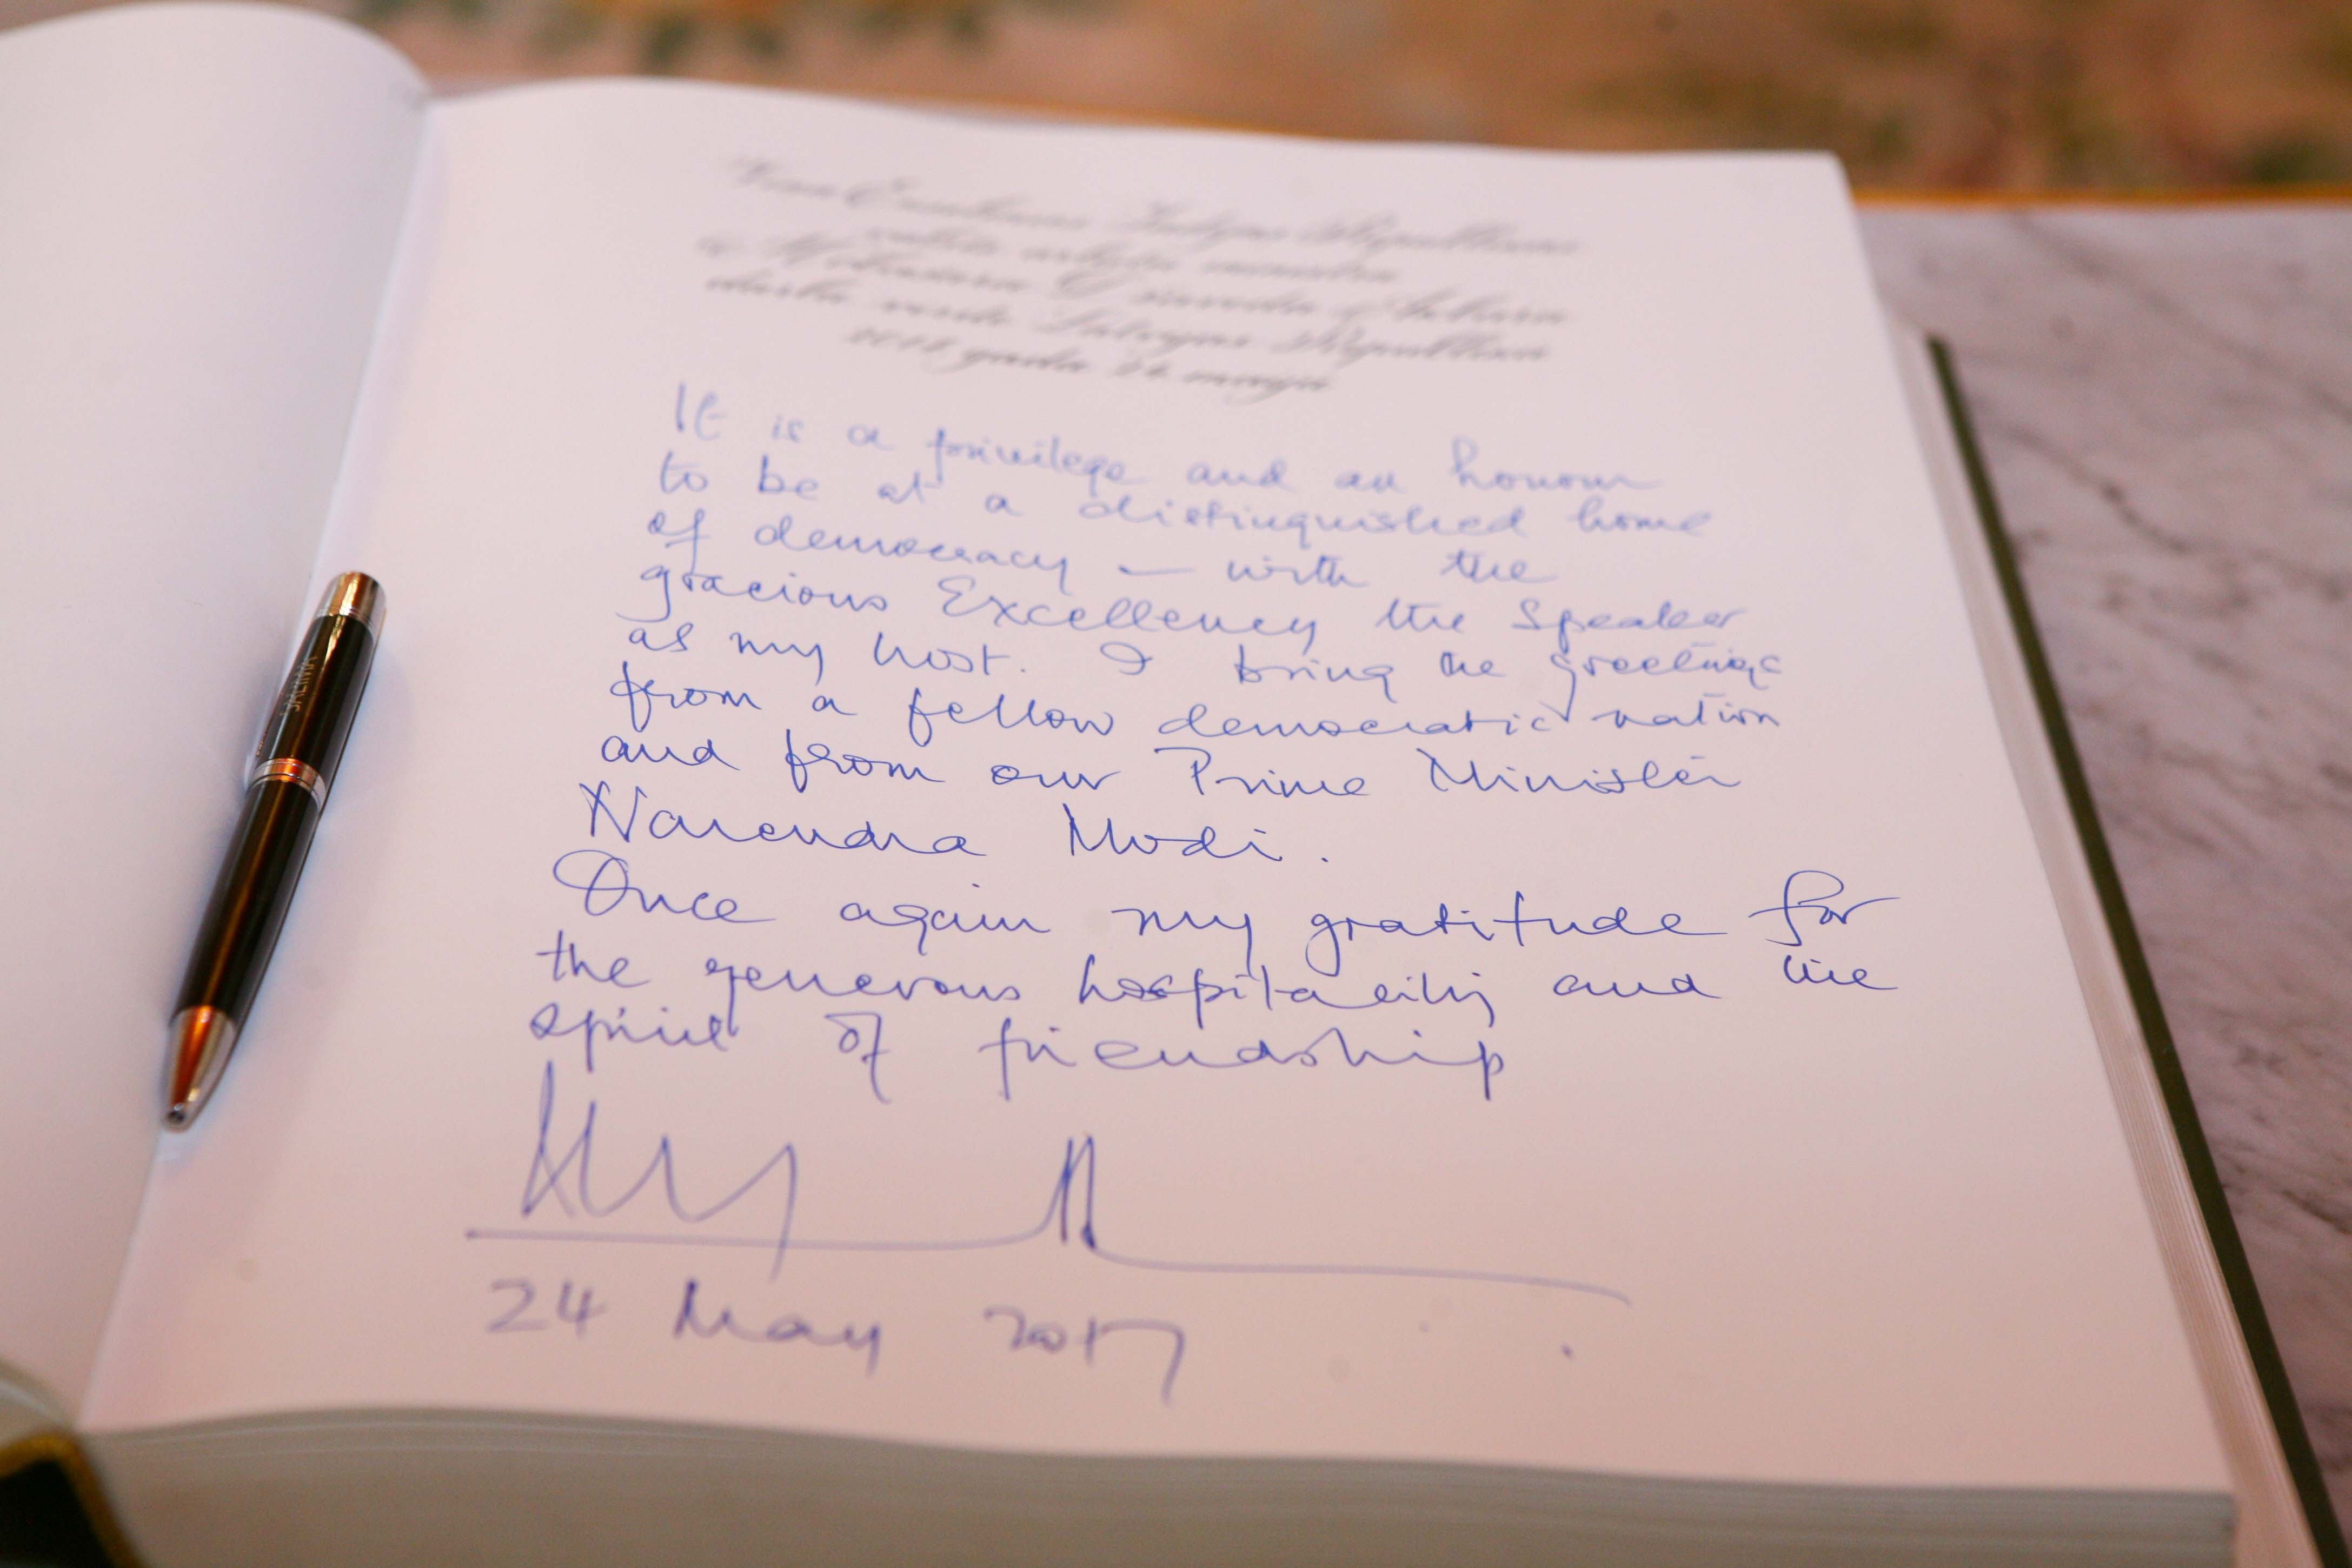 Viņa Ekselences Indijas Republikas
valsts ārlietu ministra
darba vizīte Latvijas Republikā
2017. gada 24. maijā
It is a privilege and an honour
to be at a distinguished home
of democracy – with the
gracious Excellency the Speaker
as my host. I bring the greetings
from a fellow democratic nation
and from our Prime Minister
Narendra Modi.
Once again my gratitude for
the generous hospitality and the
spirit of friendship
24 May 2017